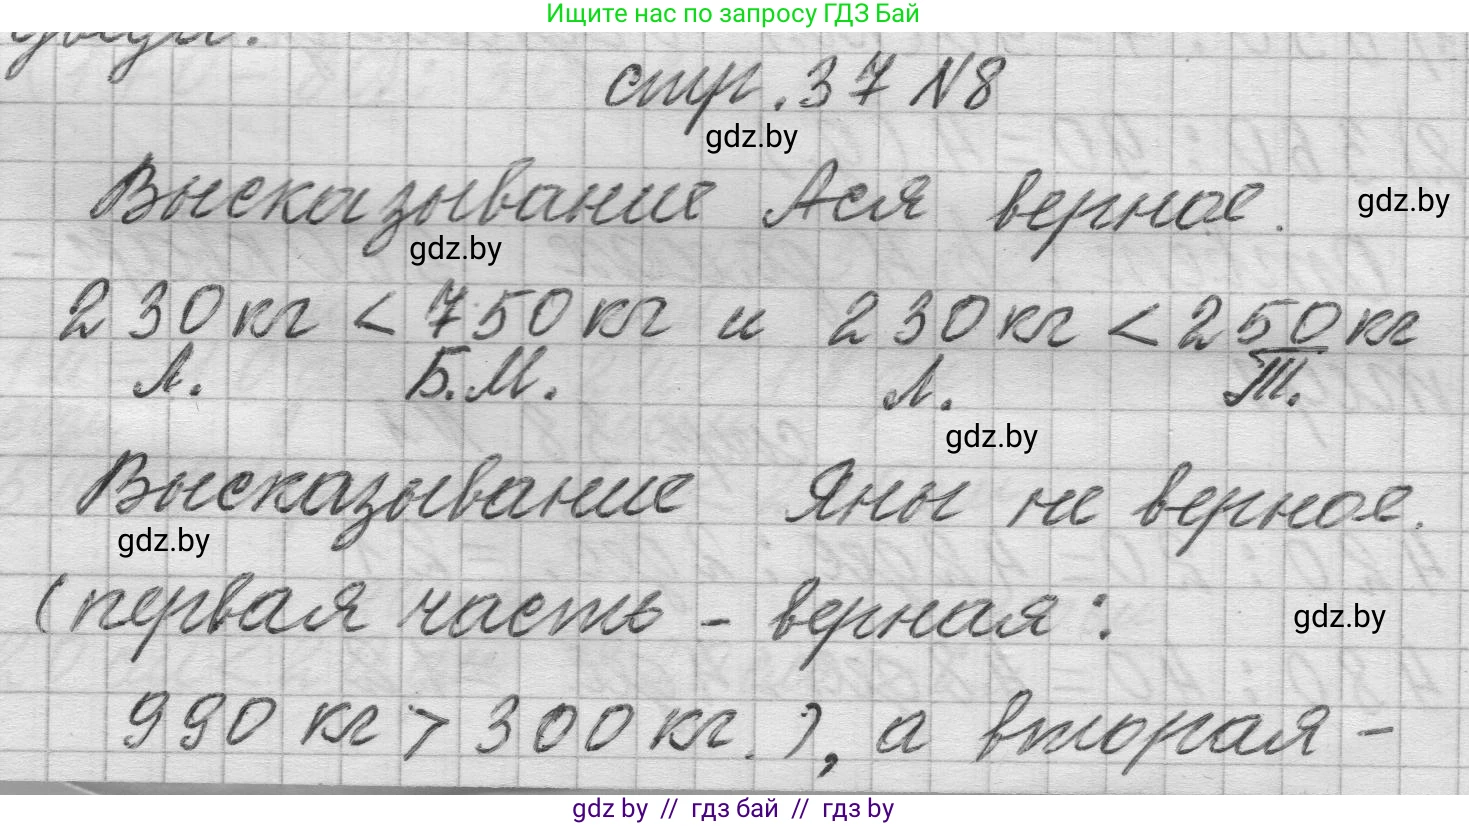 Ищите нас по запросу ГДЗ Бай
стр. 37 N8
gdz.by
Высказывание Ася верное.
gdz.by
gdz.by
230 кг < 750 кг и 230 кг < 250 кг
Л. Б.М. Л. Т.
gdz.by
Высказывание Яны не верное.
gdz.by
(первая часть - верная:
gdz.by
990 кг > 300 кг.), а вторая -
gdz by // гдз бай // гдз by